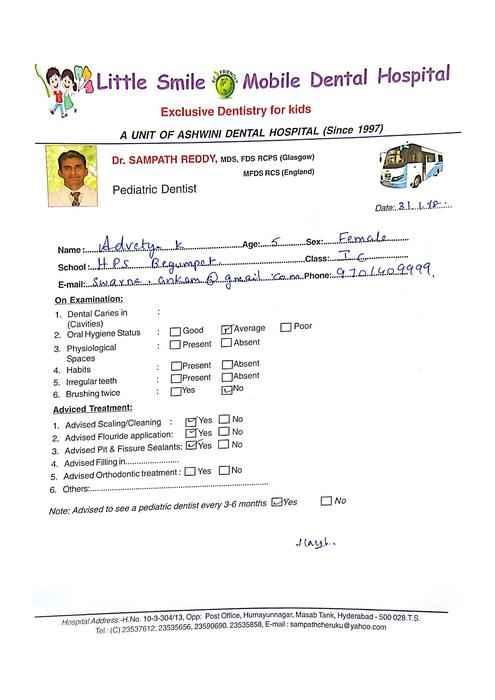 Little Smile Mobile Dental Hospital
Exclusive Dentistry for kids
A UNIT OF ASHWINI DENTAL HOSPITAL (Since 1997)
Dr. SAMPATH REDDY, MDS, FDS RCPS (Glasgow)
MFDS RCS (England)
Pediatric Dentist
Date: 31.1.18
Name: Advetya K Age: 5 Sex: Female
School: HPS Begumpet Class: I C
E-mail: Swarna.ankam@gmail.com Phone: 9701409999
On Examination:
1. Dental Caries in :
(Cavities)
2. Oral Hygiene Status : Good Average Poor
3. Physiological : Present Absent
Spaces
4. Habits : Present Absent
5. Irregular teeth : Present Absent
6. Brushing twice : Yes No
Adviced Treatment:
1. Advised Scaling/Cleaning : Yes No
2. Advised Flouride application: Yes No
3. Advised Pit & Fissure Sealants: Yes No
4. Advised Filling in
5. Advised Orthodontic treatment : Yes No
6. Others:
Note: Advised to see a pediatric dentist every 3-6 months Yes No
Hospital Address:-H.No. 10-3-304/13, Opp: Post Office, Humayunnagar, Masab Tank, Hyderabad - 500 028.T.S.
Tel : (C) 23537612, 23535656, 23590690. 23535858, E-mail : sampathcheruku@yahoo.com